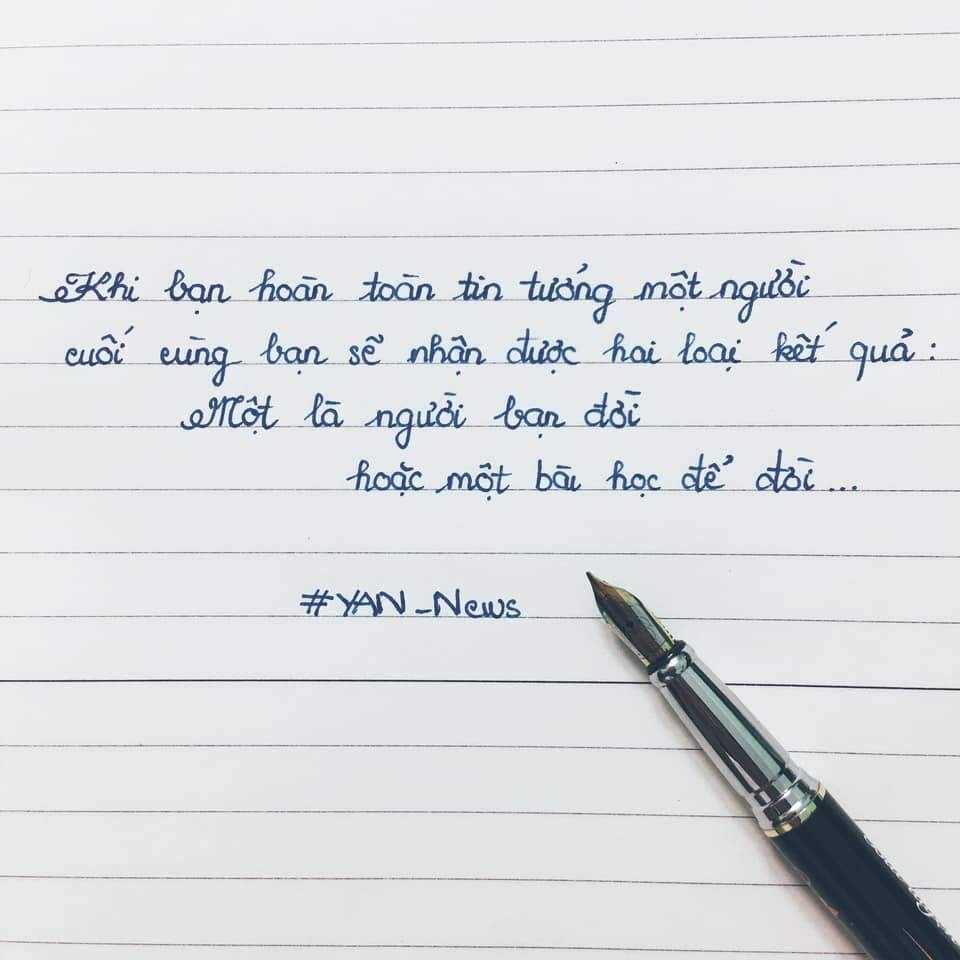 Khi bạn hoàn toàn tin tưởng một người
cuối cùng bạn sẽ nhận được hai loại kết quả:
Một là người bạn đời
hoặc một bài học để đời...
#YAN_News